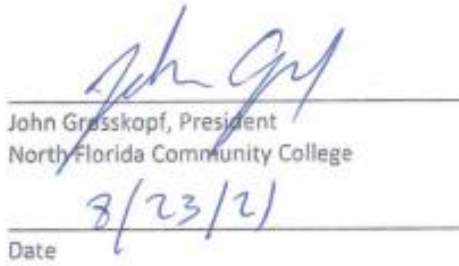 John Grosskopf, President
North Florida Community College
8/23/21
Date